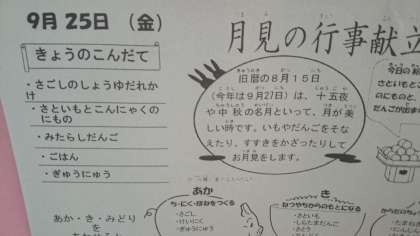 9月 25日 （金）
きょうのこんだて
・さごしのしょうゆだれかけ
・さといもとこんにゃくのにもの
・みたらしだんご
・ごはん
・ぎゅうにゅう
あか・き・みどり
月見の行事献立
旧暦の8月15日
（今年は9月27日）は、十五夜
や中秋の名月といって、月が美
しい時です。いもやだんごをそな
えたり、すすきをかざったりして
お月見をします。
今日の
さといもと
のにものと、
だんごが
あか
ち・にく・ほねをつくる
・さごし
・けいにく
・ぎゅうにゅう
き
ねつやちからのもとになる
・さといも
・しらたまだんご
・さとう